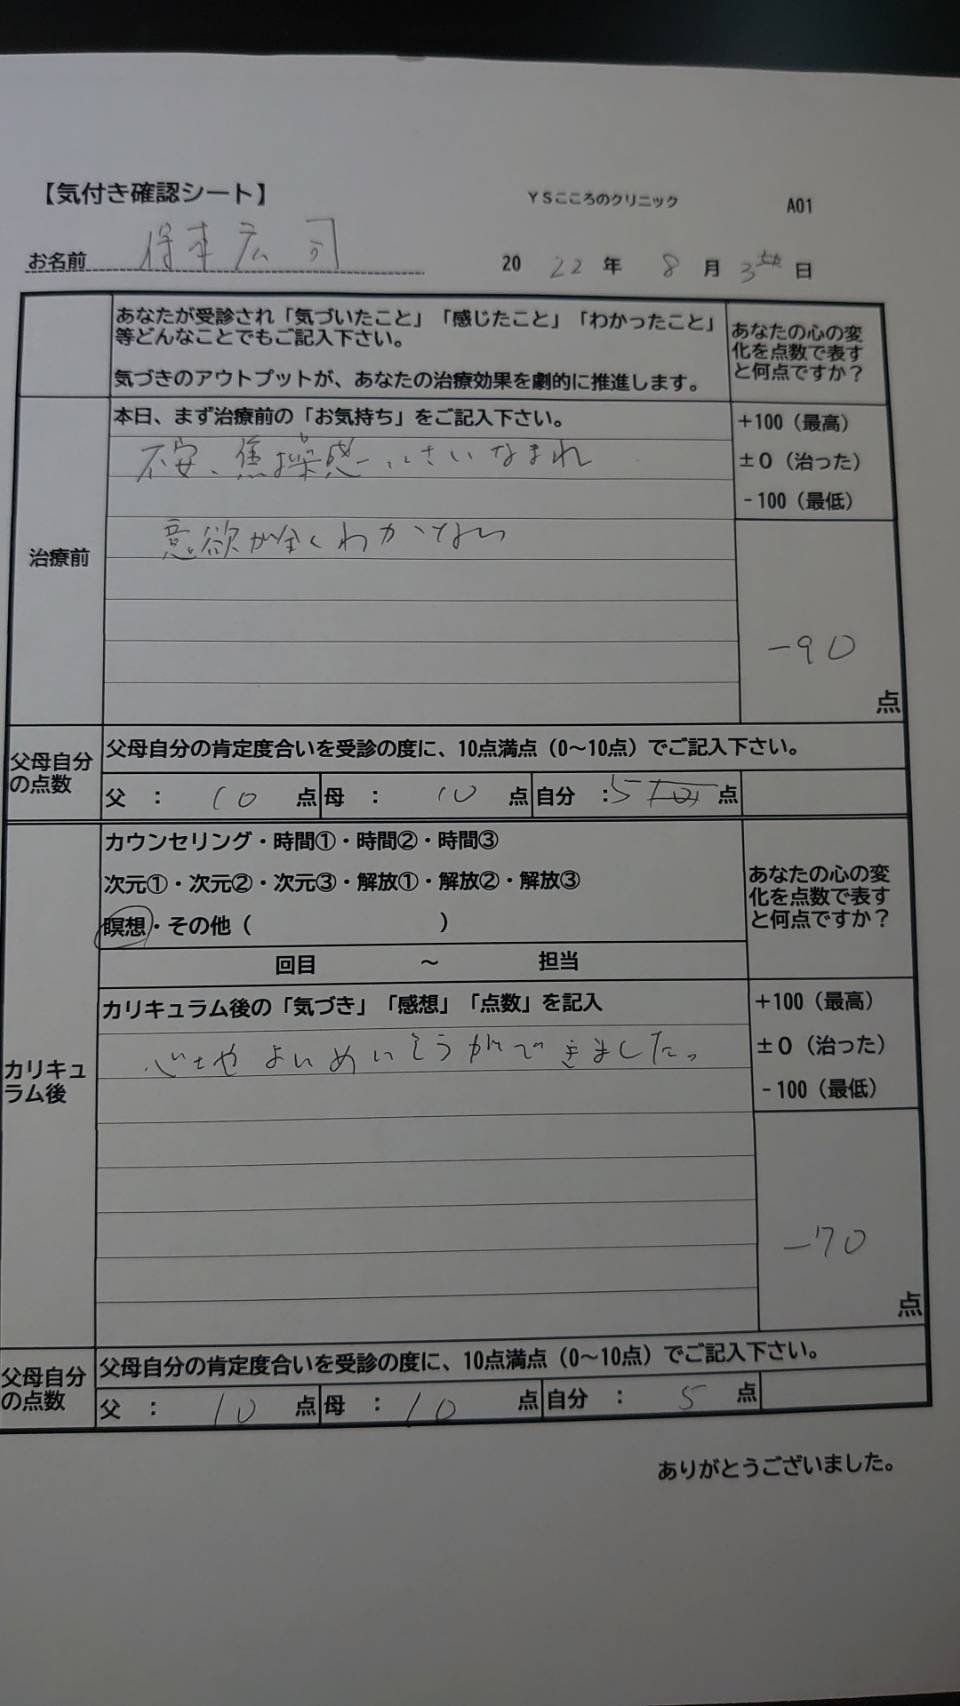 【気付き確認シート】 YSこころのクリニック A01
お名前 保本 広司 2022年 8月 3日
あなたが受診され「気づいたこと」「感じたこと」「わかったこと」
等どんなことでもご記入下さい。
気づきのアウトプットが、あなたの治療効果を劇的に推進します。
あなたの心の変
化を点数で表す
と何点ですか？
治療前
本日、まず治療前の「お気持ち」をご記入下さい。
不安、焦燥感にさいなまれ
意欲が全くわかない
+100（最高）
±0（治った）
-100（最低）
-90
点
父母自分
の点数
父母自分の肯定度合いを受診の度に、10点満点（0〜10点）でご記入下さい。
父 ： 10 点 母 ： 10 点 自分 ：5 点
カリキュ
ラム後
カウンセリング・時間①・時間②・時間③
次元①・次元②・次元③・解放①・解放②・解放③
瞑想・その他（ ）
回目 〜 担当
あなたの心の変
化を点数で表す
と何点ですか？
カリキュラム後の「気づき」「感想」「点数」を記入
心地よいめいそうができました。
+100（最高）
±0（治った）
-100（最低）
-70
点
父母自分
の点数
父母自分の肯定度合いを受診の度に、10点満点（0〜10点）でご記入下さい。
父 ： 10 点 母 ： 10 点 自分 ： 5 点
ありがとうございました。